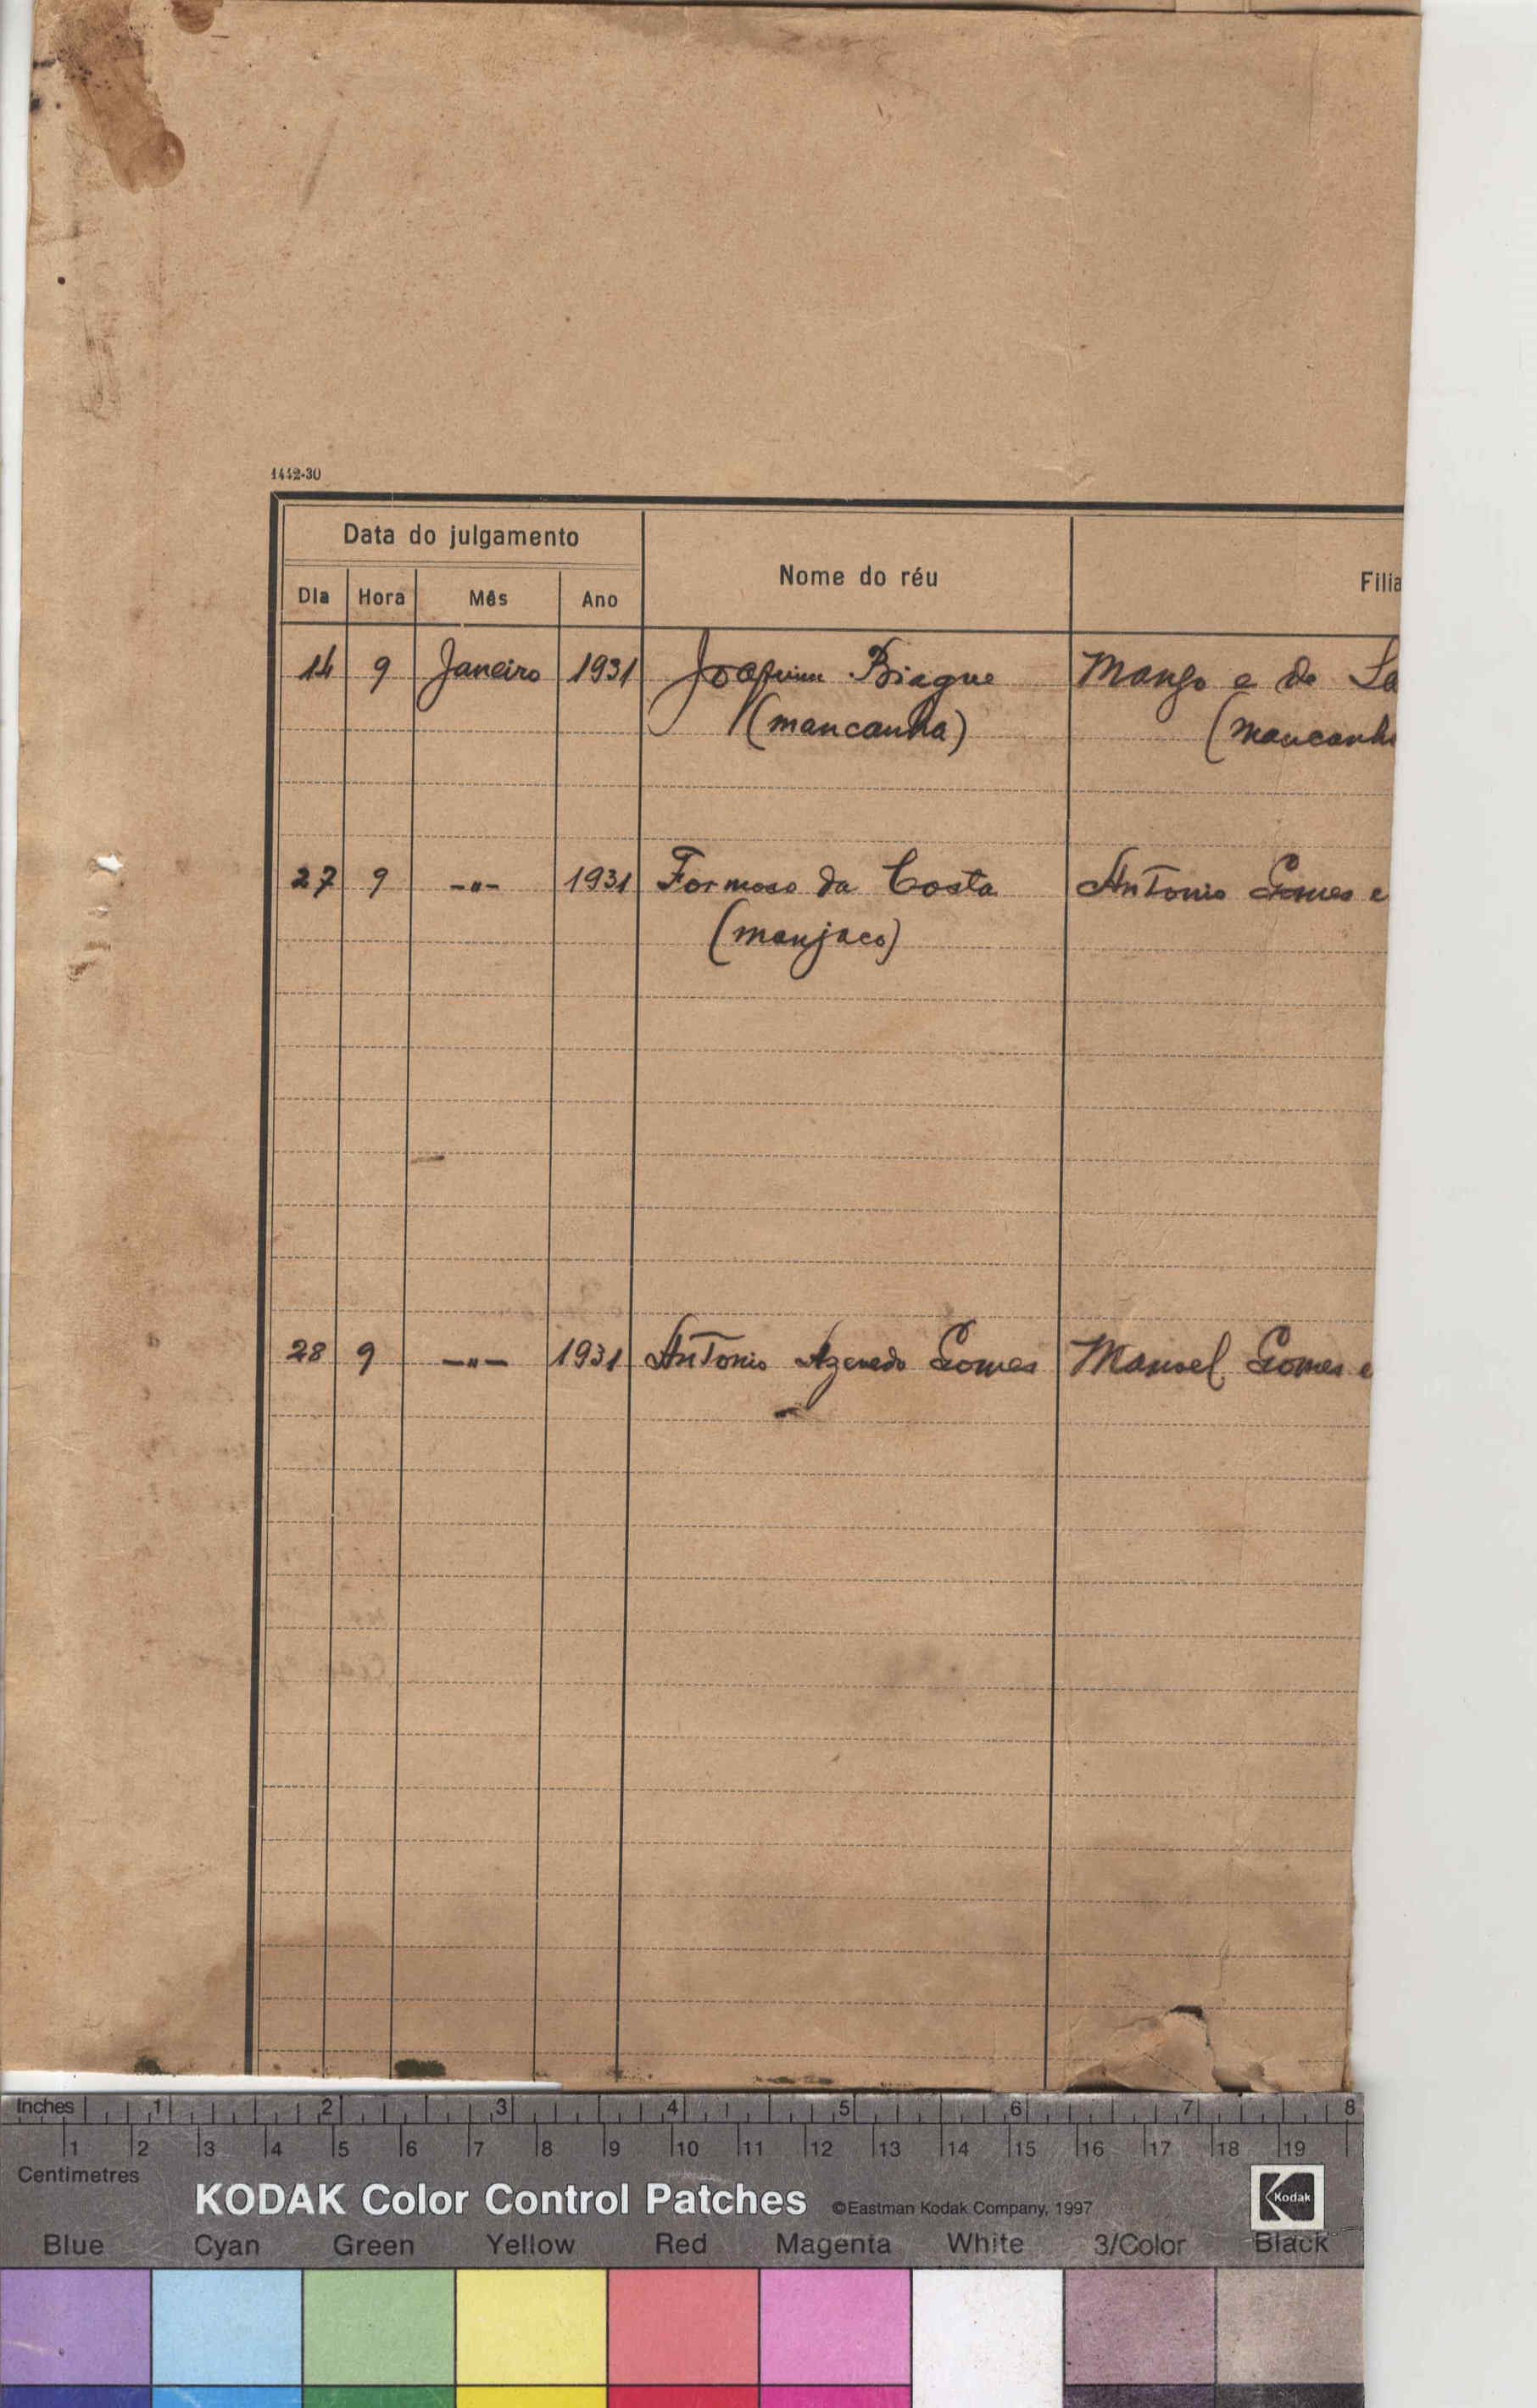 1442-30
Data do julgamento
Nome do réu
Filia
Dia Hora Mês Ano
14 9 Janeiro 1931 Joaquim Biague Mango e de
(mancanha) (mancanh
27 9 -"- 1931 Formoso da Costa Antonio Gomes e
(manjaco)
28 9 -"- 1931 Antonio Azevedo Gomes Manoel Gomes e
Inches 1 2 3 4 5 6 7 8
1 2 3 4 5 6 7 8 9 10 11 12 13 14 15 16 17 18 19
Centimetres
KODAK Color Control Patches ©Eastman Kodak Company, 1997 Kodak
Blue Cyan Green Yellow Red Magenta White 3/Color Black